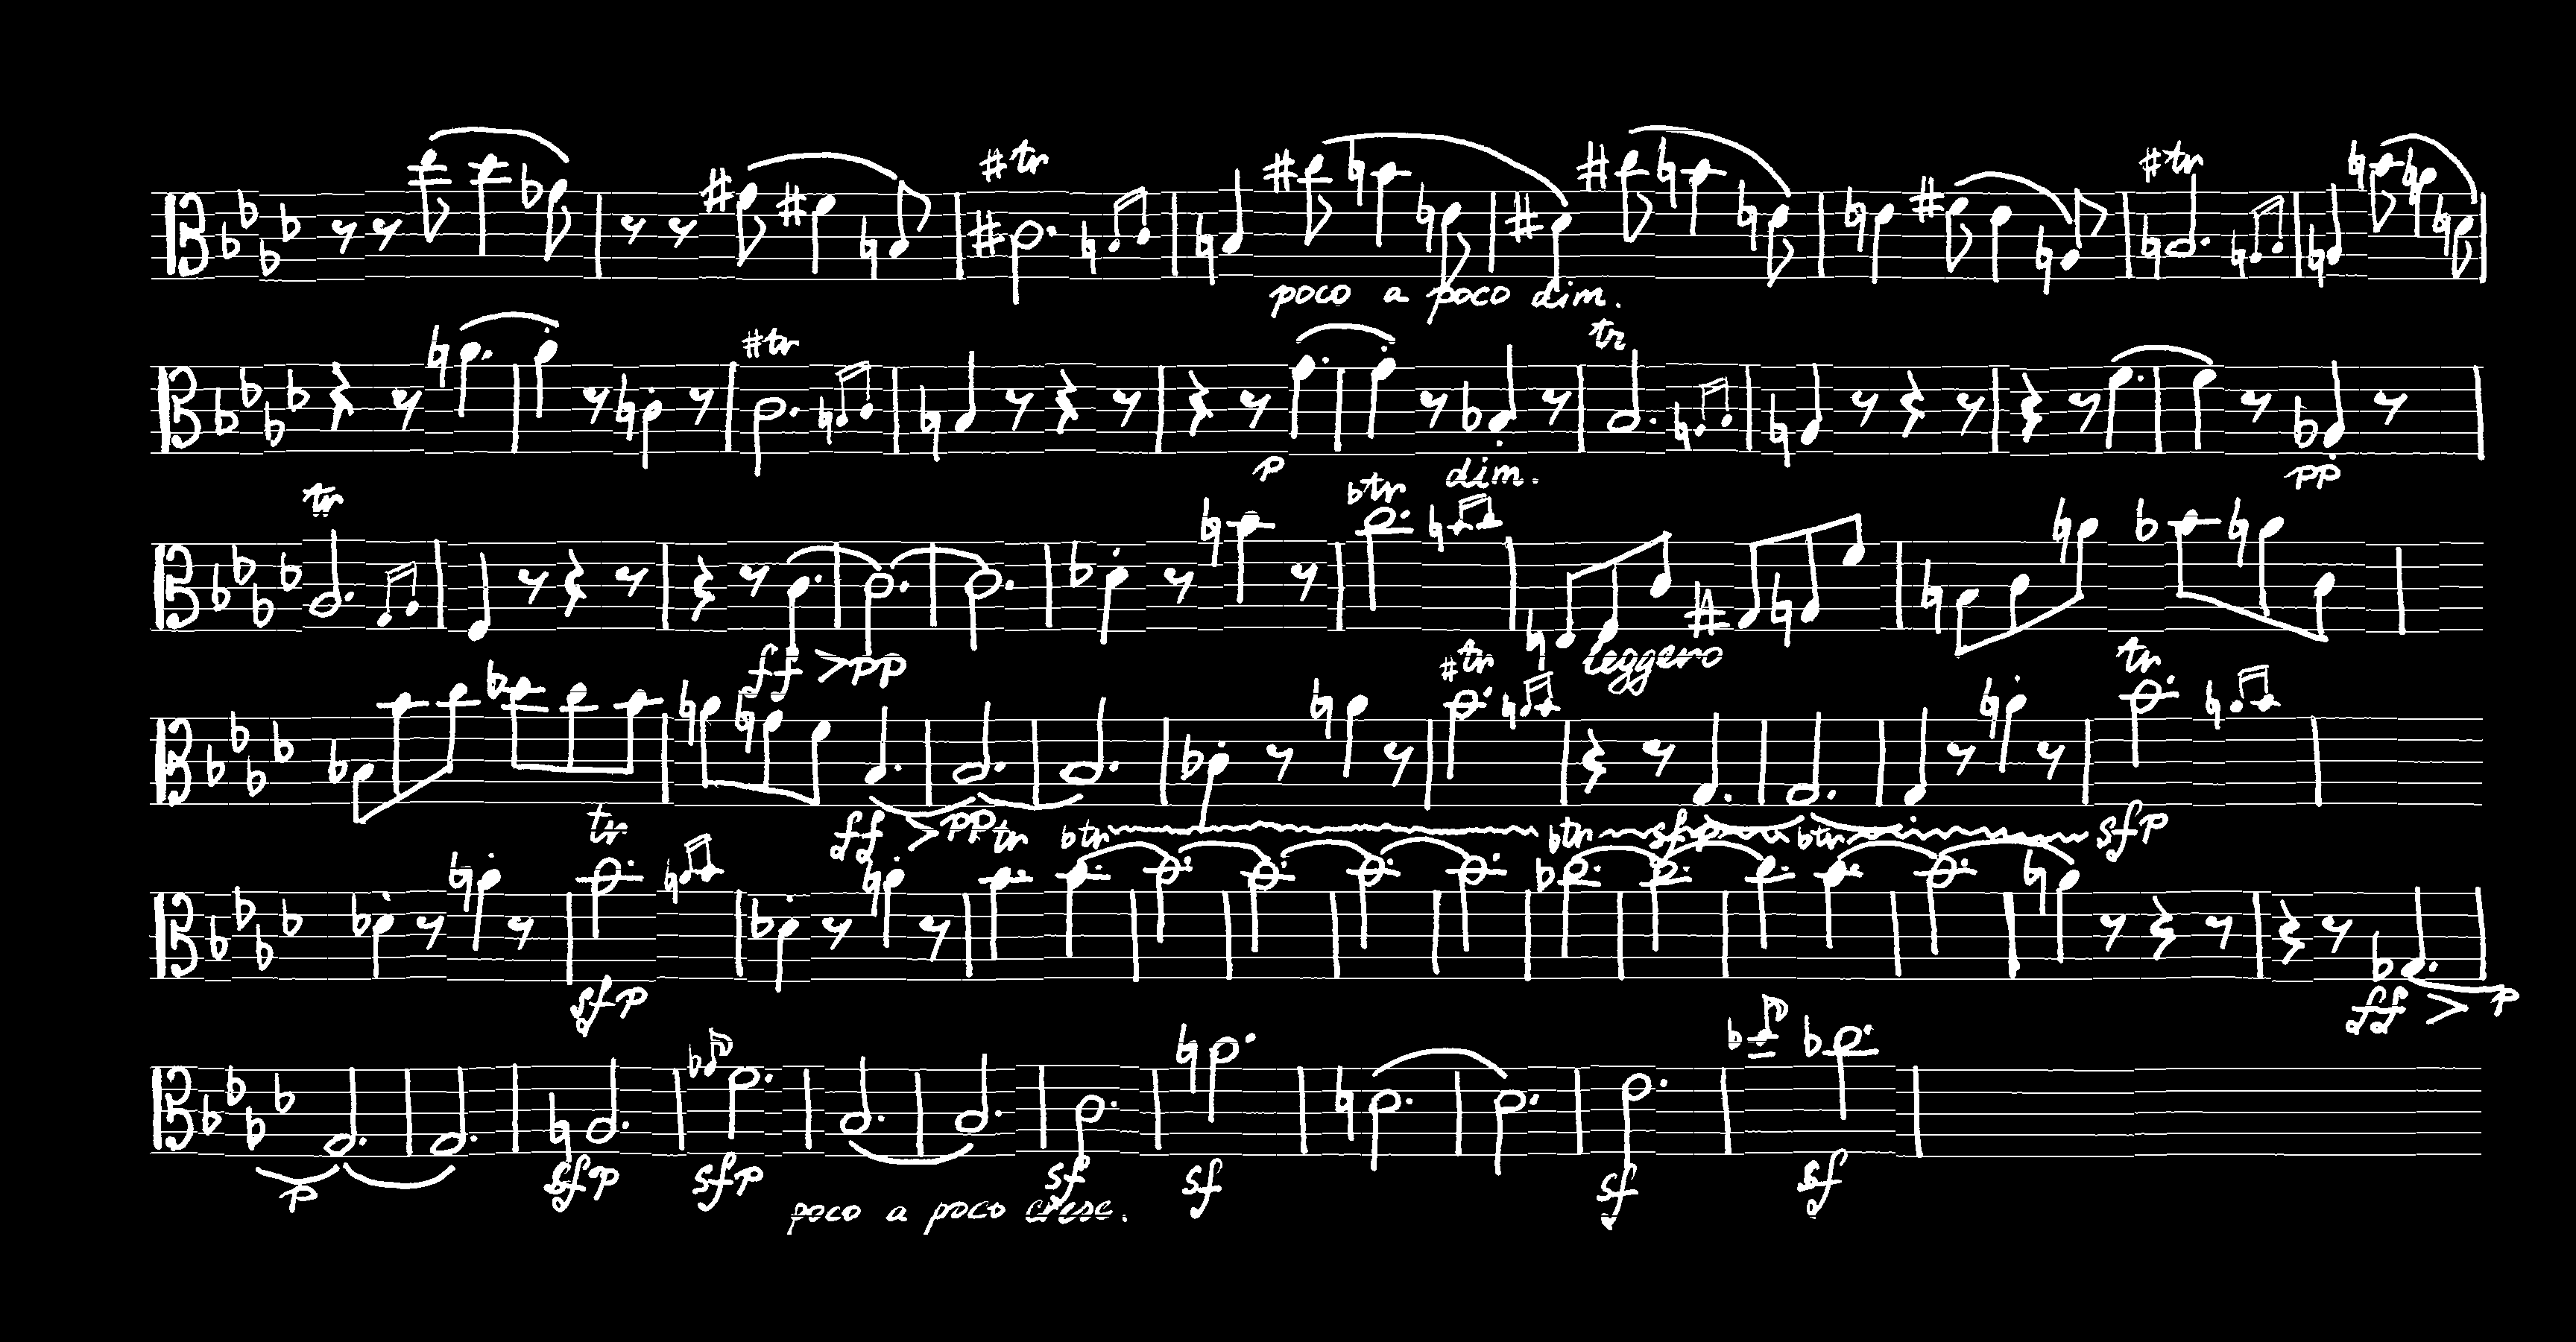 tr tr
poco a poco dim.
tr tr
p dim. pp
tr tr
ff pp leggero
tr tr
ff pp sfp sfp
tr tr tr tr tr
sfp ff p
p sfp sfp sf sf sf sf
poco a poco cresc.